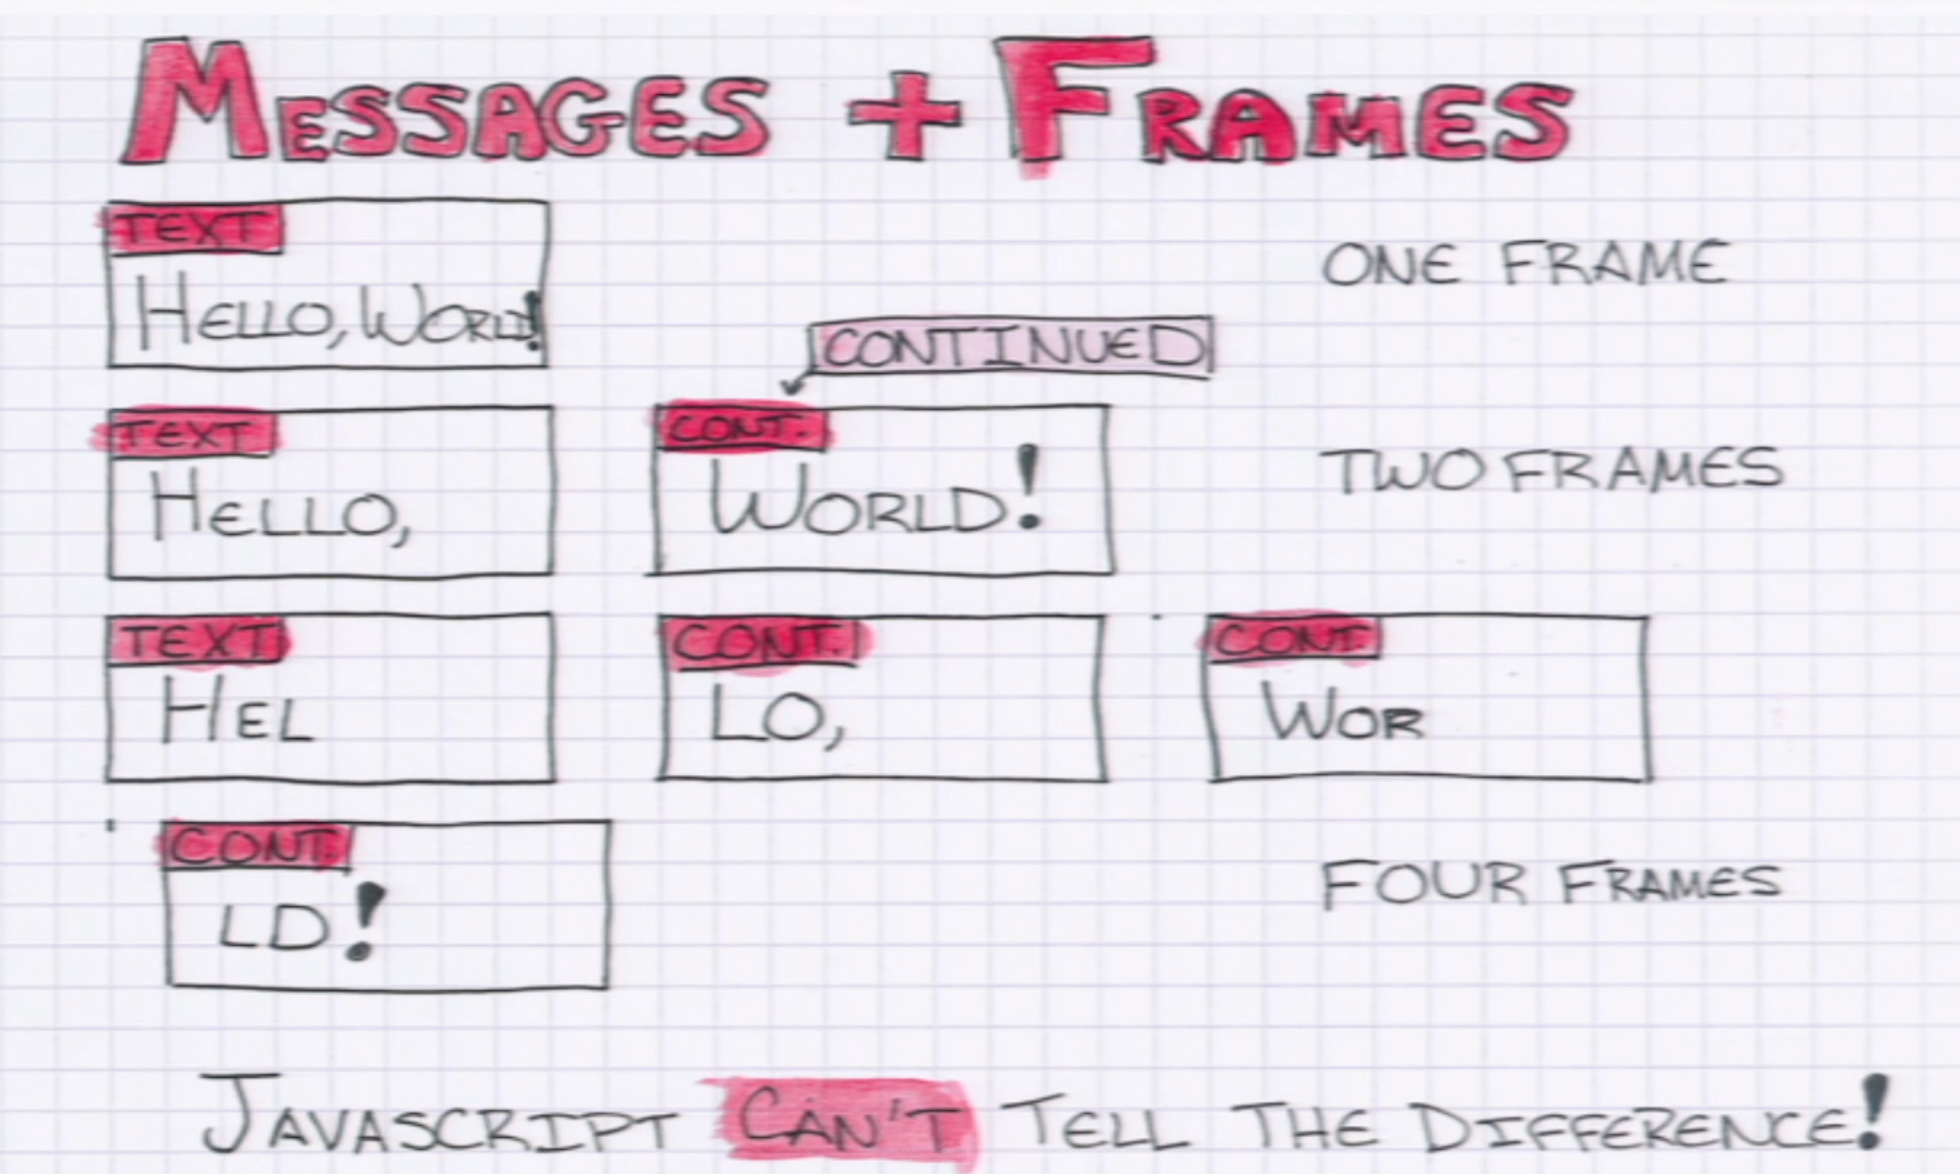 MESSAGES + FRAMES
TEXT
HELLO, WORLD!
ONE FRAME
CONTINUED
TEXT
HELLO,
CONT.
WORLD!
TWO FRAMES
TEXT
HEL
CONT.
LO,
CONT.
WOR
CONT.
LD!
FOUR FRAMES
JAVASCRIPT CAN'T TELL THE DIFFERENCE!